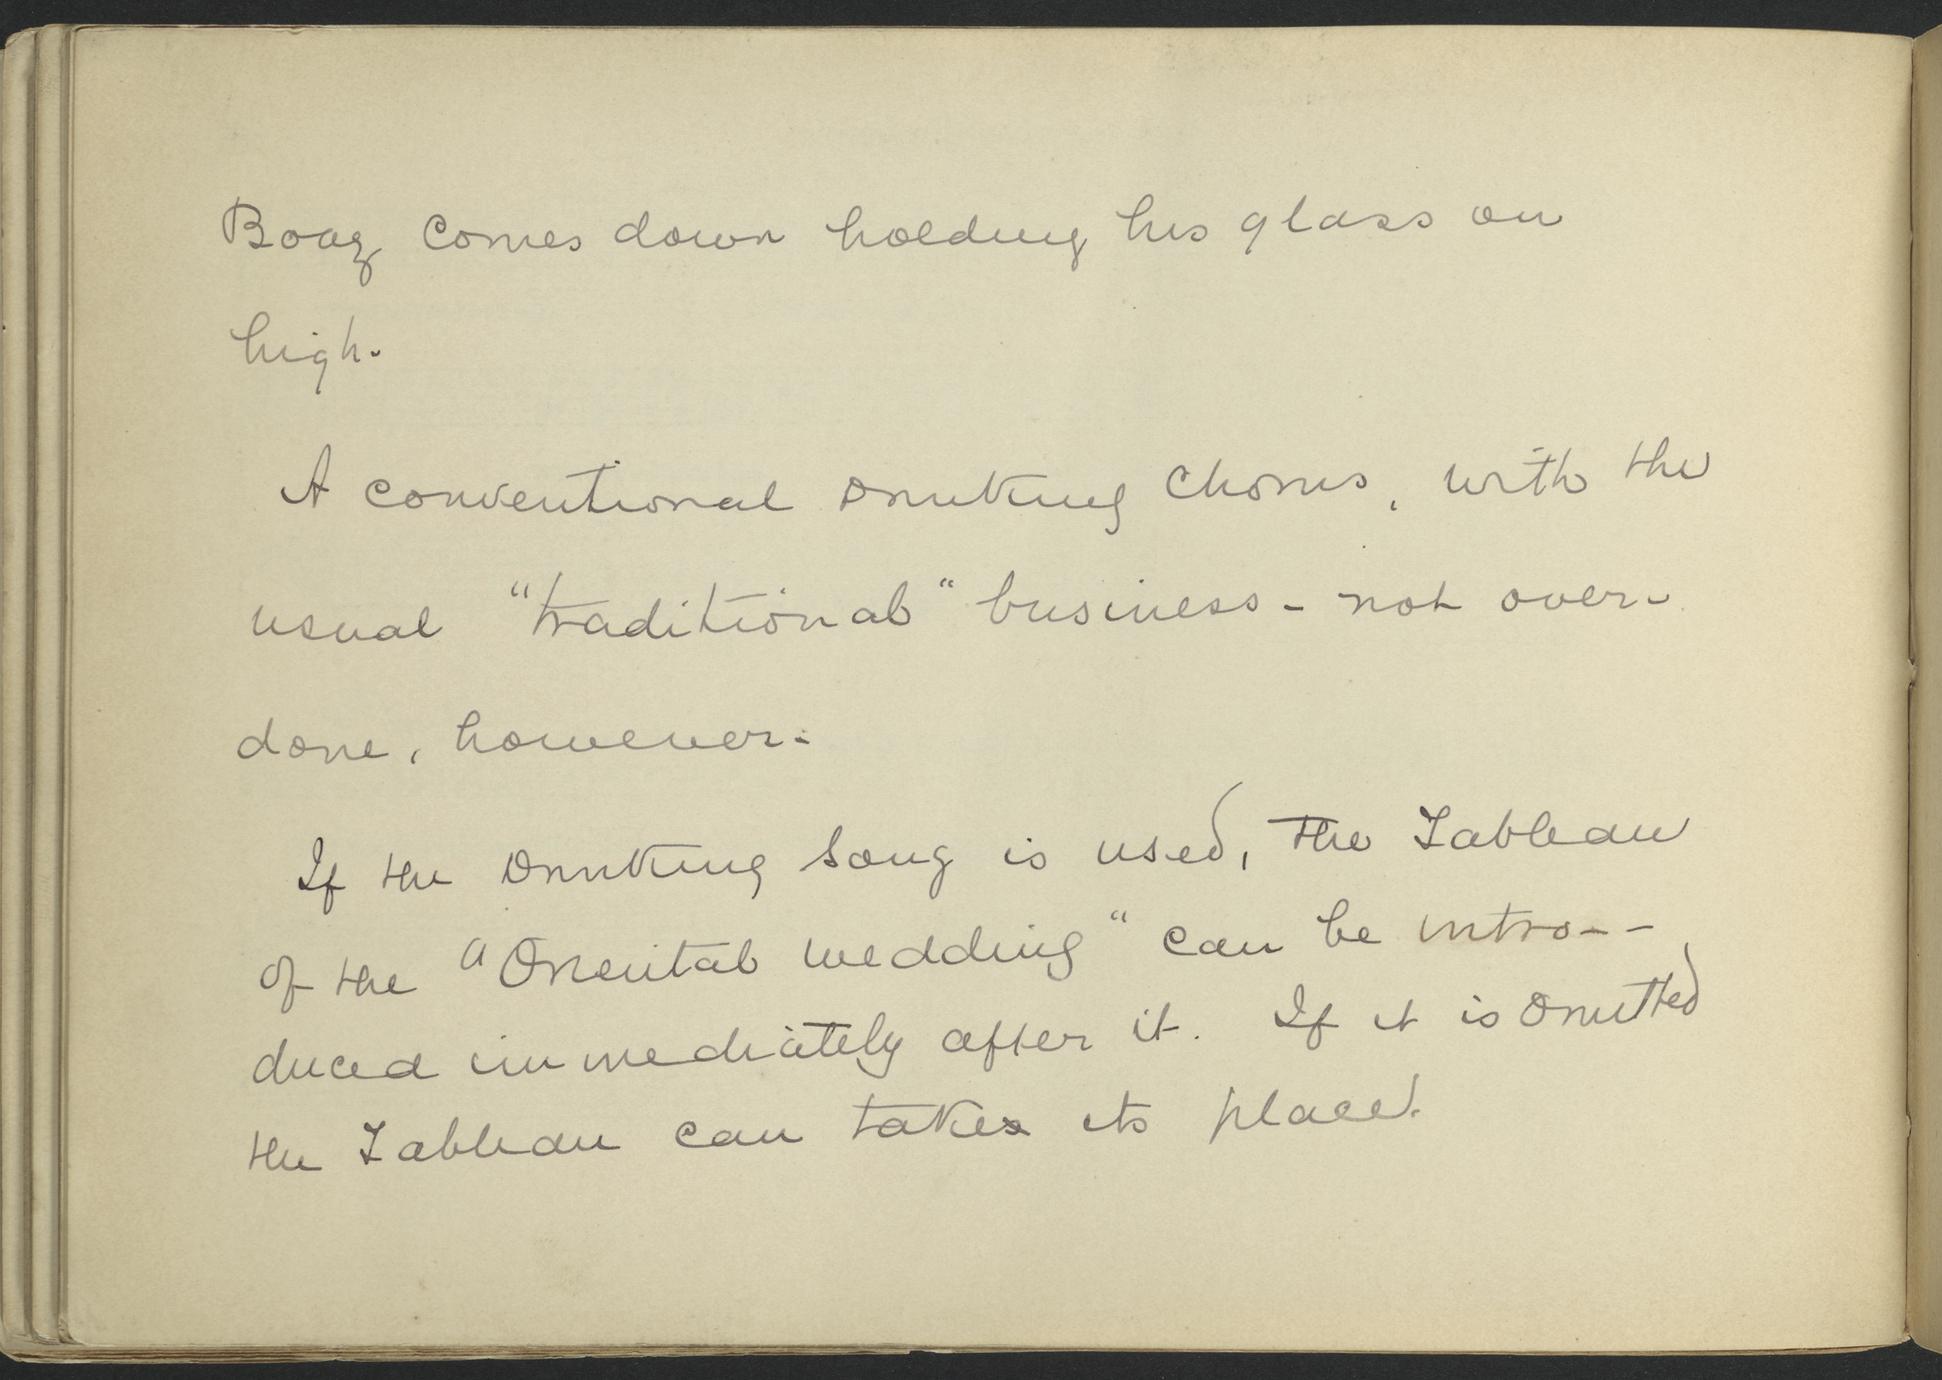 Boaz comes down holding his glass on
high.
A conventional Drinking Chorus, with the
usual "traditional" business - not over-
done, however.
If the Drinking Song is used, the Tableau
of the "Oriental wedding" can be intro--
duced immediately after it. If it is Omitted
the Tableau can take its place.